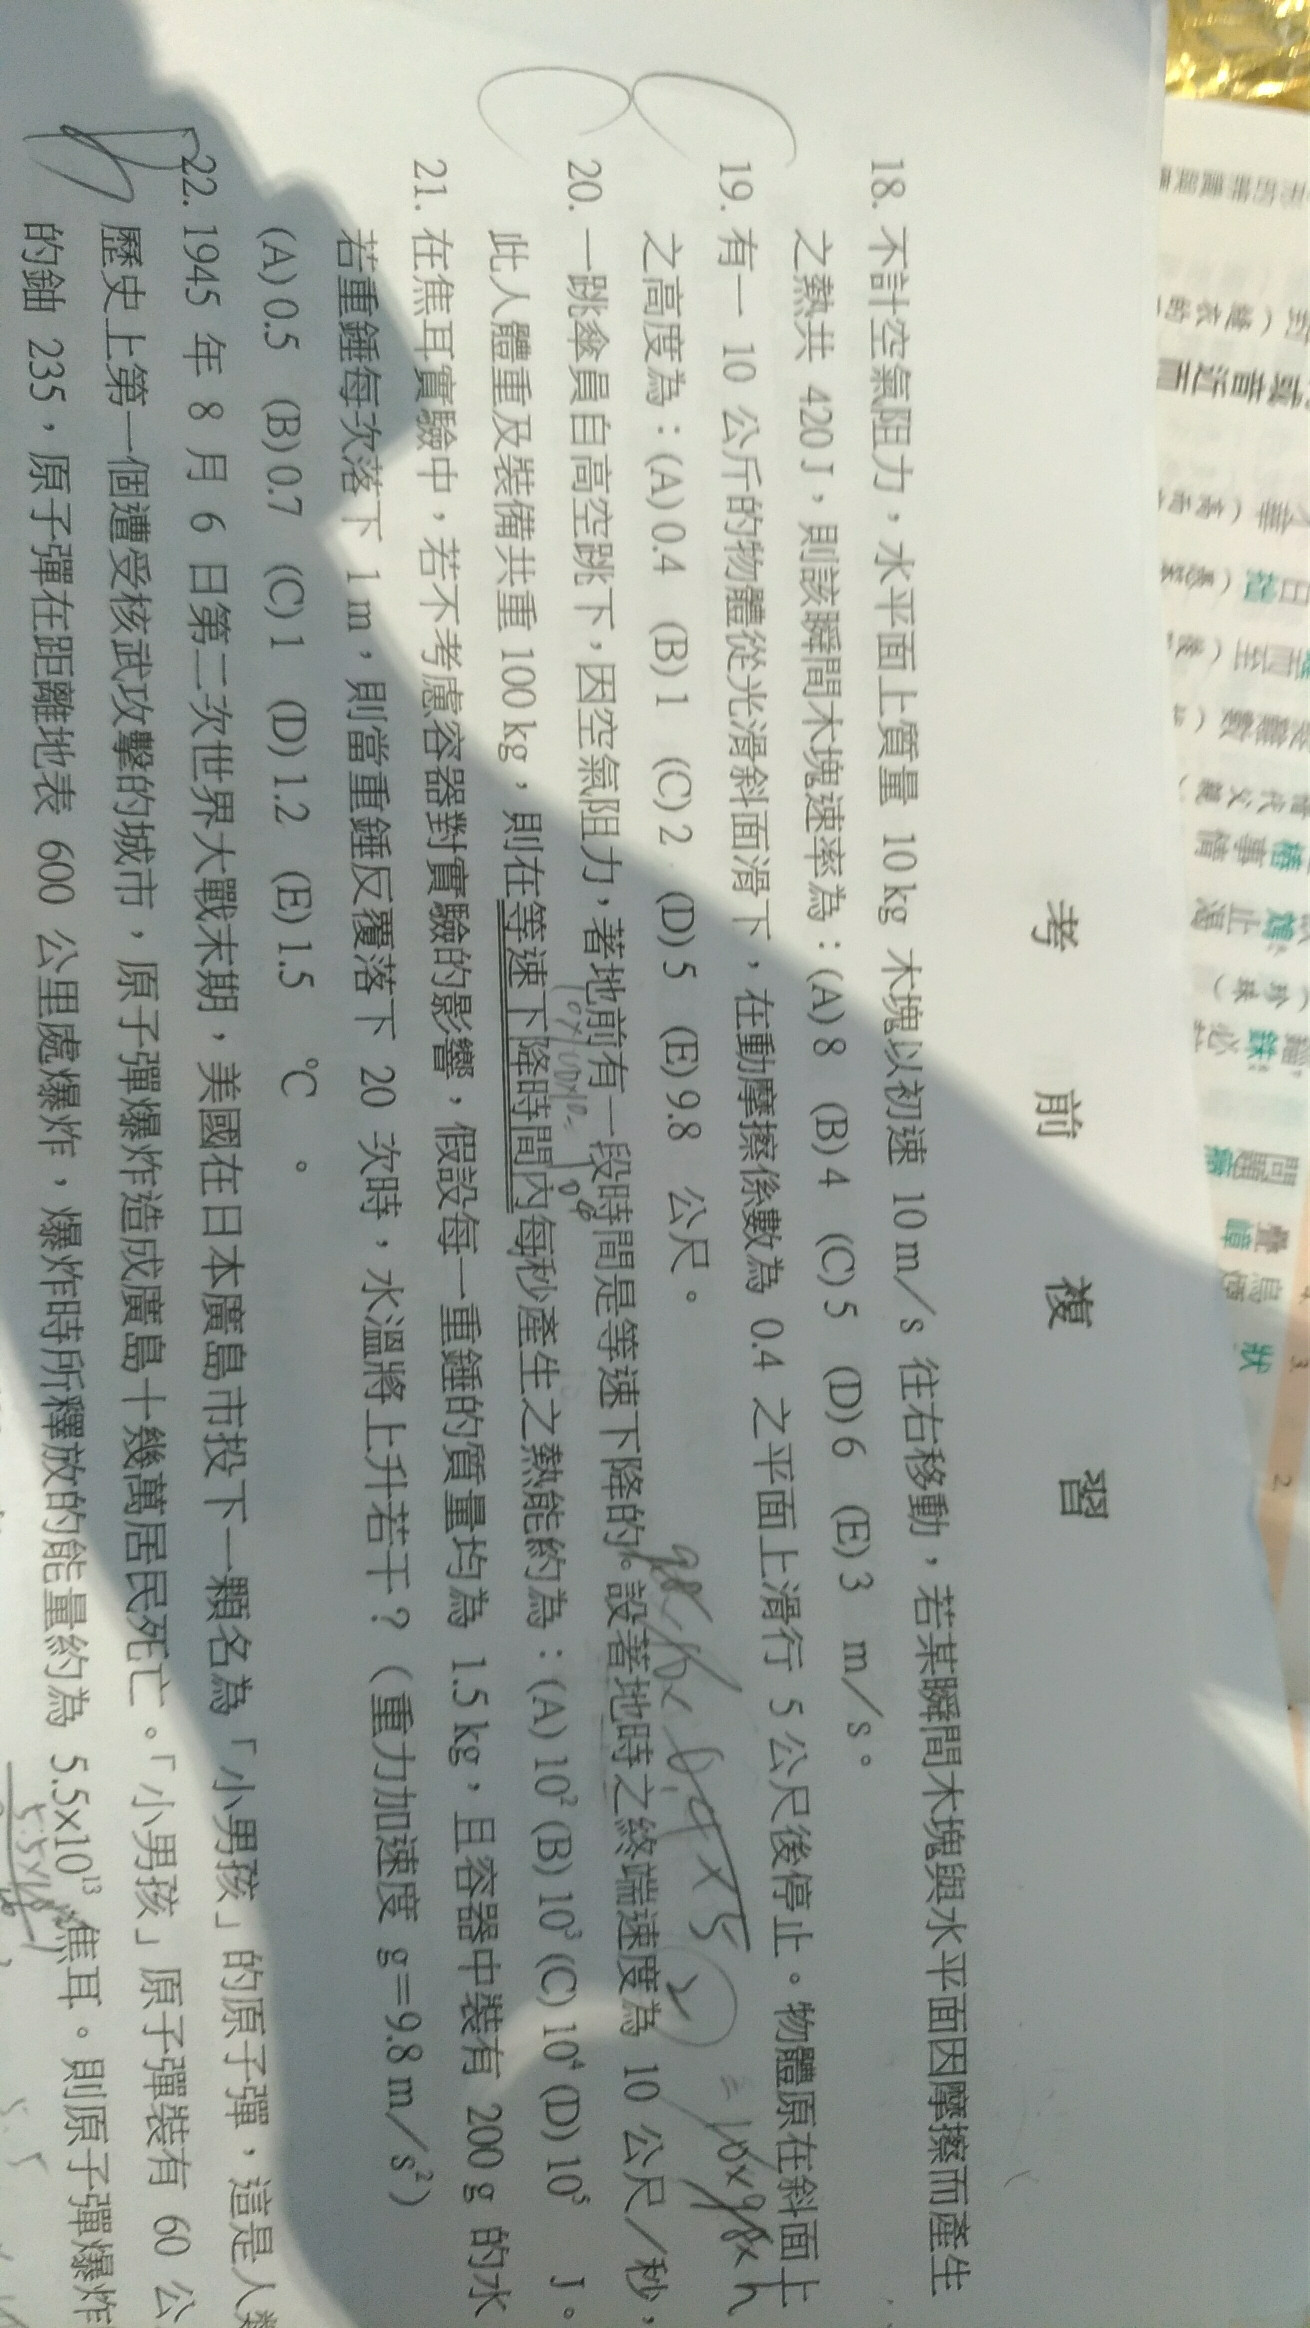 考前複習
18. 不計空氣阻力，水平面上質量 10 kg 木塊以初速 10 m／s 往右移動，若某瞬間木塊與水平面因摩擦而產生
之熱共 420 J，則該瞬間木塊速率為：(A) 8 (B) 4 (C) 5 (D) 6 (E) 3 m／s。
19. 有一 10 公斤的物體從光滑斜面滑下，在動摩擦係數為 0.4 之平面上滑行 5 公尺後停止。物體原在斜面上
之高度為：(A) 0.4 (B) 1 (C) 2 (D) 5 (E) 9.8 公尺。
20. 一跳傘員自高空跳下，因空氣阻力，著地前有一段時間是等速下降的。設著地時之終端速度為 10 公尺／秒，
此人體重及裝備共重 100 kg，則在等速下降時間內每秒產生之熱能約為：(A) 10² (B) 10³ (C) 10⁴ (D) 10⁵ J。
21. 在焦耳實驗中，若不考慮容器對實驗的影響，假設每一重錘的質量均為 1.5 kg，且容器中裝有 200 g 的水
若重錘每次落下 1 m，則當重錘反覆落下 20 次時，水溫將上升若干？（重力加速度 g＝9.8 m／s²）
(A) 0.5 (B) 0.7 (C) 1 (D) 1.2 (E) 1.5 ℃。
22. 1945 年 8 月 6 日第二次世界大戰末期，美國在日本廣島市投下一顆名為「小男孩」的原子彈，這是人類
歷史上第一個遭受核武攻擊的城市，原子彈爆炸造成廣島十幾萬居民死亡。「小男孩」原子彈裝有 60 公
的鈾 235，原子彈在距離地表 600 公里處爆炸，爆炸時所釋放的能量約為 5.5×10¹³ 焦耳。則原子彈爆炸